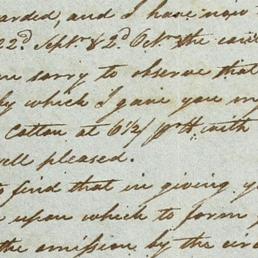 arded, and I have now
22d. Sept. & 2d. Octr. the
sorry to observe that
by which I gave you
Cotton at 6½/ with
well pleased.
to find that in giving
upon which to form
the omission by the